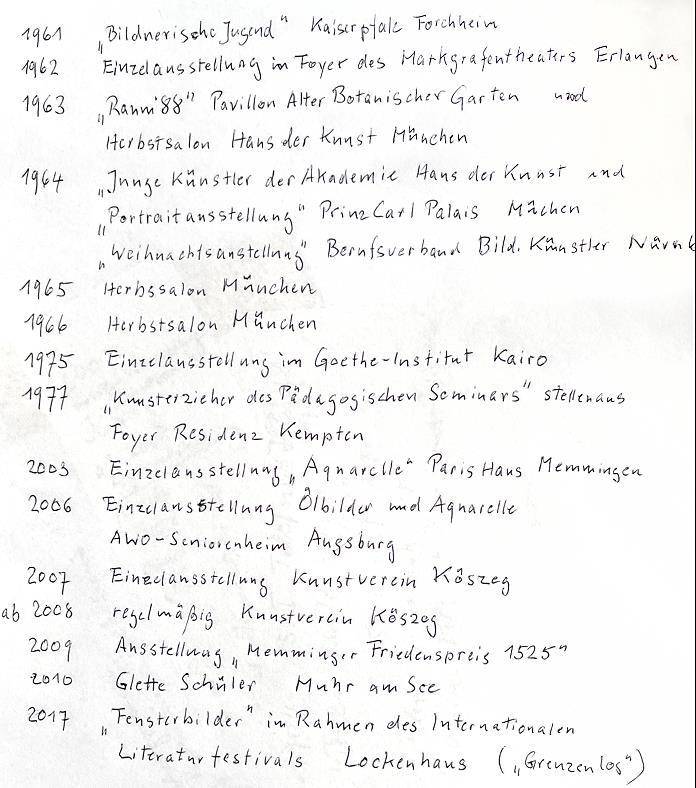 1961 „Bildnerische Jugend" Kaiserpfalz Forchheim
1962 Einzelausstellung im Foyer des Markgrafentheaters Erlangen
1963 „Raum '88" Pavillon Alter Botanischer Garten und
Herbstsalon Haus der Kunst München
1964 „Junge Künstler der Akademie Haus der Kunst und
„Portraitausstellung" Prinz Carl Palais Müchen
„Weihnachtsanstellung" Berufsverband Bild. Künstler Nürnb
1965 Herbssalon München
1966 Herbstsalon München
1975 Einzelausstellung im Goethe-Institut Kairo
1977 „Kunsterzieher des Pädagogischen Seminars" stellen aus
Foyer Residenz Kempten
2003 Einzelausstellung „Aquarelle" Paris Haus Memmingen
2006 Einzelausstellung Ölbilder und Aquarelle
AWO-Seniorenheim Augsburg
2007 Einzelausstellung Kunstverein Kőszeg
ab 2008 regelmäßig Kunstverein Kőszeg
2009 Ausstellung „Memminger Friedenspreis 1525"
2010 Glette Schüler Muhr am See
2017 „Fensterbilder" im Rahmen des Internationalen
Literaturfestivals Lockenhaus („Grenzenlos")